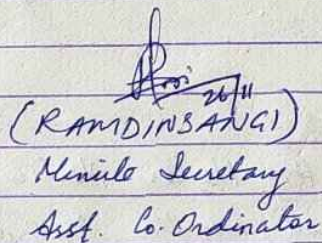 26/11
(RAMDINSANGI)
Minute Secretary
Asst. Co. Ordinator